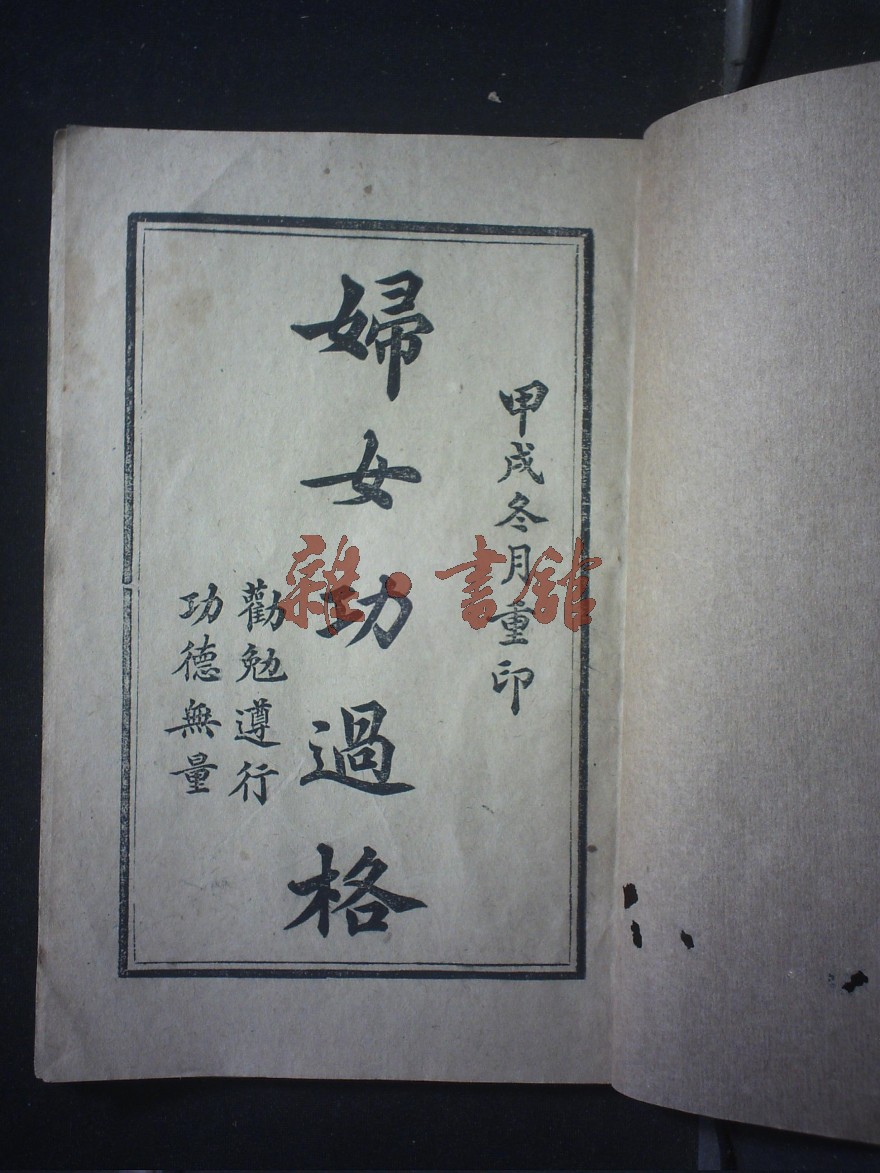 甲戌冬月重印
婦女功過格
勸勉遵行
功德無量
雜·書館